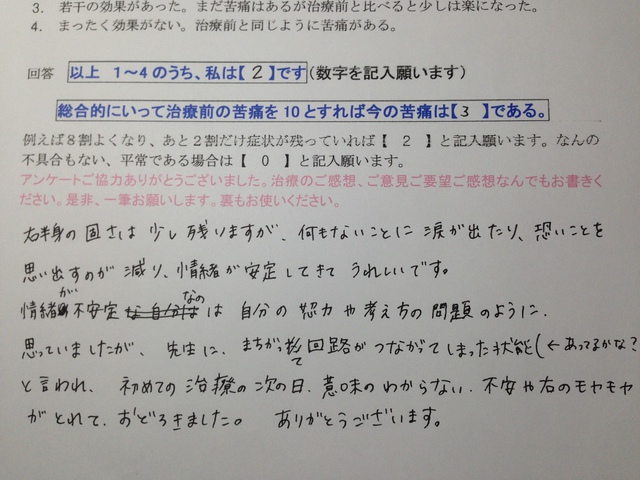 3. 若干の効果があった。まだ苦痛はあるが治療前と比べると少しは楽になった。
4. まったく効果がない。治療前と同じように苦痛がある。
回答 以上 1～4のうち、私は【 2 】です(数字を記入願います)
総合的にいって治療前の苦痛を10とすれば今の苦痛は【 3 】である。
例えば8割よくなり、あと2割だけ症状が残っていれば【 2 】と記入願います。なんの
不具合もない、平常である場合は【 0 】と記入願います。
アンケートご協力ありがとうございました。治療のご感想、ご意見ご要望ご感想なんでもお書きく
ださい。是非、一筆お願いします。裏もお使いください。
右半身の固さは少し残りますが、何もないことに涙が出たり、恐いことを
思い出すのが減り、情緒が安定してきてうれしいです。
情緒が不安定なのは自分の努力や考え方の問題のように、
思っていましたが、先生に、まちがって回路がつながってしまった状態(←あってるかな?
と言われ、初めての治療の次の日、意味のわからない、不安や右のモヤモヤ
がとれて、おどろきました。 ありがとうございます。